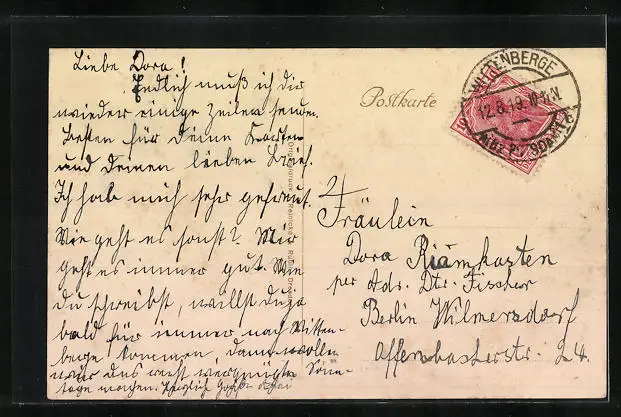 Liebe Dora!
Endlich muß ich dir
wieder einige Zeilen senden.
Besten für deine Karten
und deinen lieben Brief.
Ich hab mich sehr gefreut.
Wie geht es sonst? Mir
geht es immer gut. Wie
du schreibst, willst du ja
bald für immer nach Witten-
berge kommen, dann wollen
wir uns recht vergnügte Sonn-
tage machen. Herzliche Grüße
Postkarte
WITTENBERGE
12.8.19. 10-11.V.
Fräulein
Dora Riämkasten
per Adr. Dtr. Fischer
Berlin Wilmersdorf
Offenbacherstr. 24.